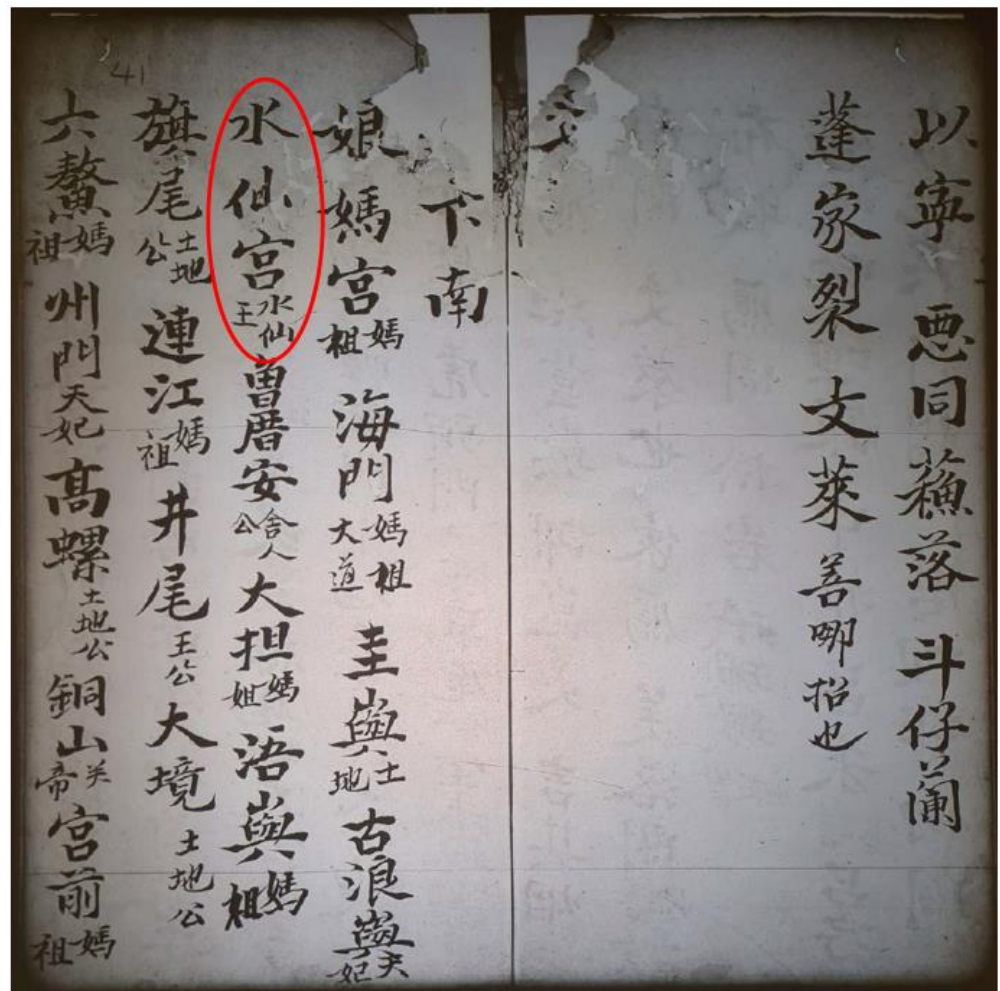 以寧 悪同 蘓落 斗仔蘭
蓬家裂 文萊 善哪招也
下南
娘媽宮媽祖 海門媽祖大道 圭㠘土地 古浪㠘天妃
水仙宮水仙王 曽厝安舍人公 大担媽祖 浯㠘媽祖
旗尾土地公 連江媽祖 井尾王公 大境土地公
六鰲媽祖 州門天妃 高螺土地公 銅山关帝 宮前媽祖
41